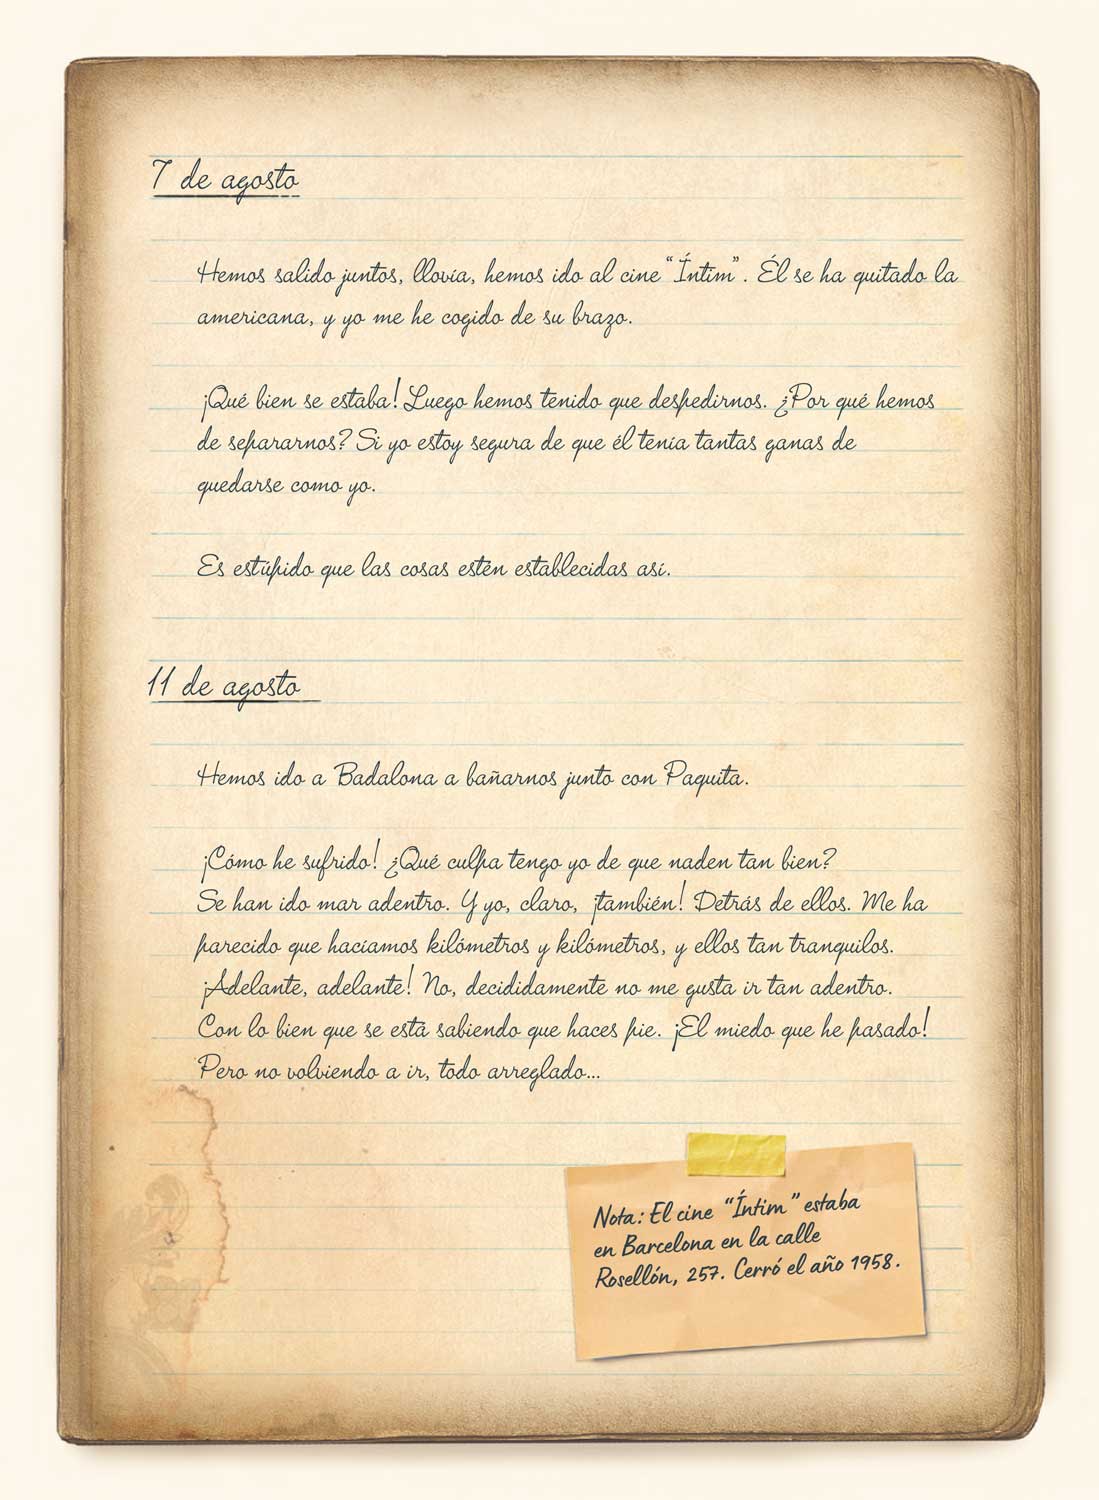 7 de agosto
Hemos salido juntos, llovía, hemos ido al cine “Íntim”. Él se ha quitado la
americana, y yo me he cogido de su brazo.
¡Qué bien se estaba! Luego hemos tenido que despedirnos. ¿Por qué hemos
de separarnos? Si yo estoy segura de que él tenía tantas ganas de
quedarse como yo.
Es estúpido que las cosas estén establecidas así.
11 de agosto
Hemos ido a Badalona a bañarnos junto con Paquita.
¡Cómo he sufrido! ¿Qué culpa tengo yo de que naden tan bien?
Se han ido mar adentro. Y yo, claro, ¡también! Detrás de ellos. Me ha
parecido que hacíamos kilómetros y kilómetros, y ellos tan tranquilos.
¡Adelante, adelante! No, decididamente no me gusta ir tan adentro.
Con lo bien que se está sabiendo que haces pie. ¡El miedo que he pasado!
Pero no volviendo a ir, todo arreglado...
Nota: El cine “Íntim” estaba
en Barcelona en la calle
Rosellón, 257. Cerró el año 1958.